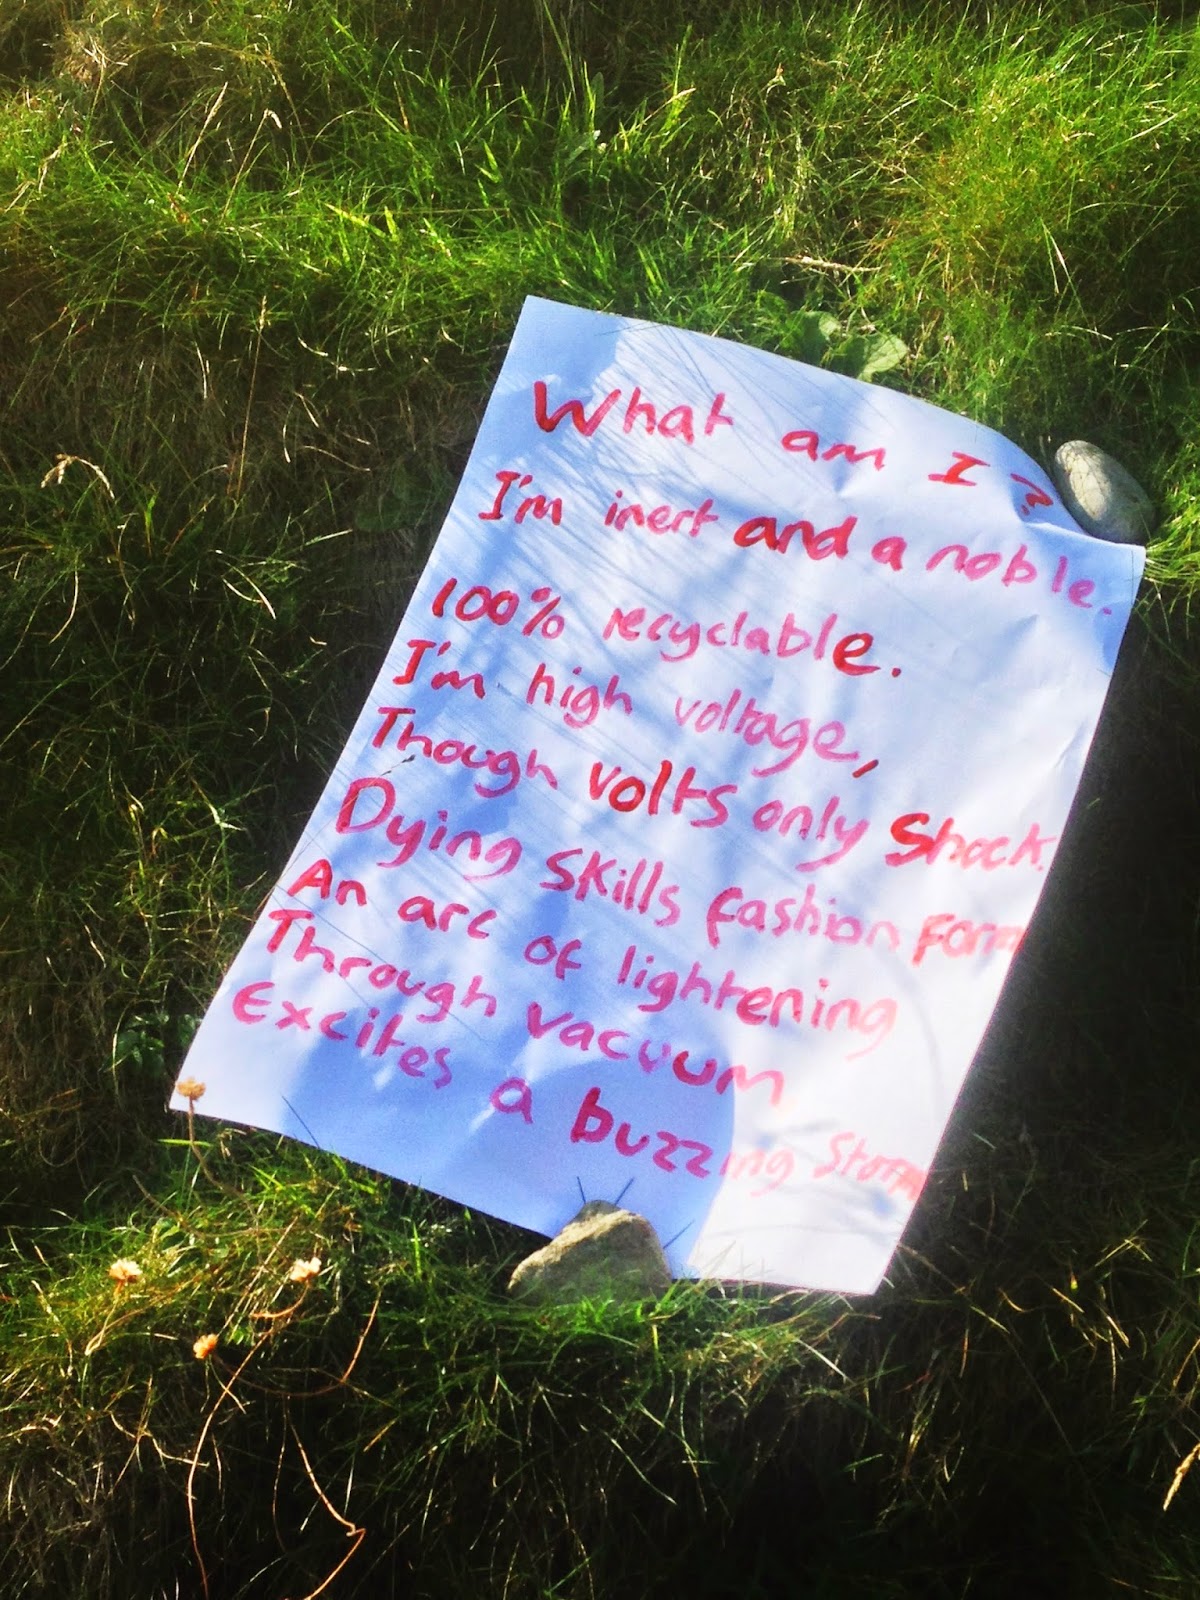 What am I?
I'm inert and a noble.
100% recyclable.
I'm high voltage,
Though volts only Shock.
Dying skills fashion form
An arc of lightening
Through vacuum
Excites a buzzing Storm